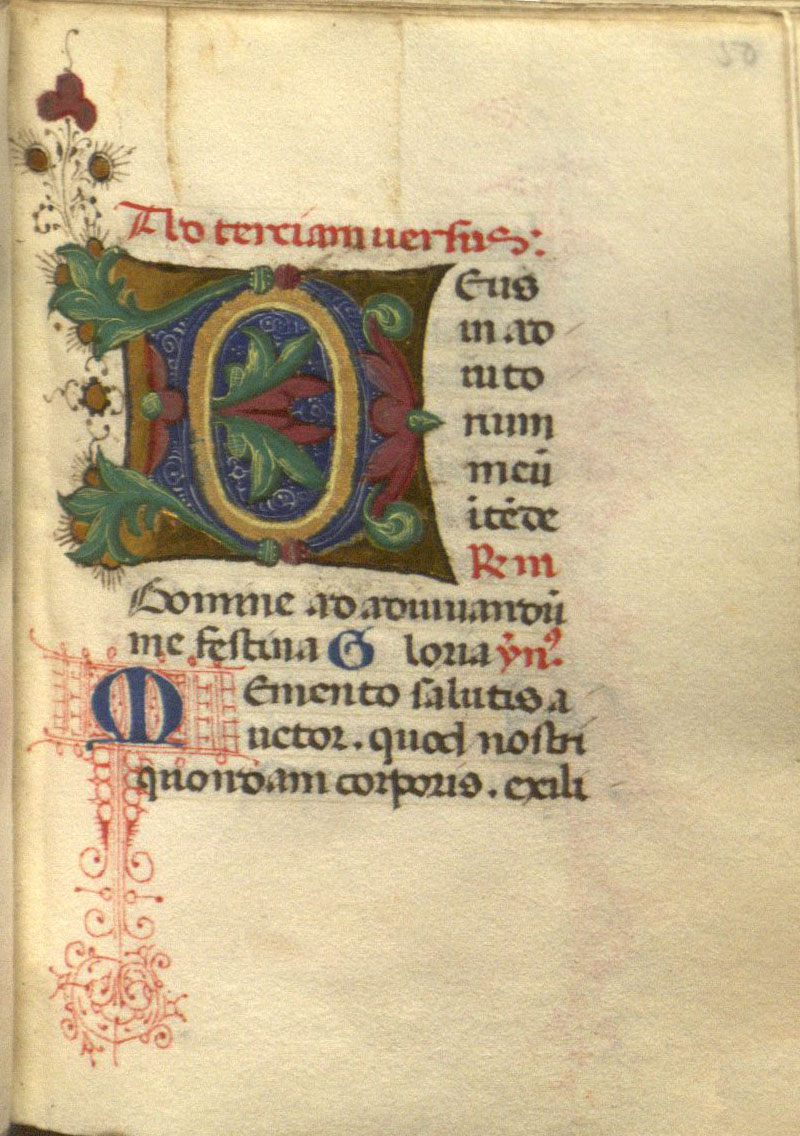 50
Ad terciam uersus:
Deus
in ad
iuto
rium
meū
itēde
Rem
Domine ad adiuuandū
me festina Gloria ẏn⁹.
Memento salutis a
uctor. quod nostri
quondam corporis. exili